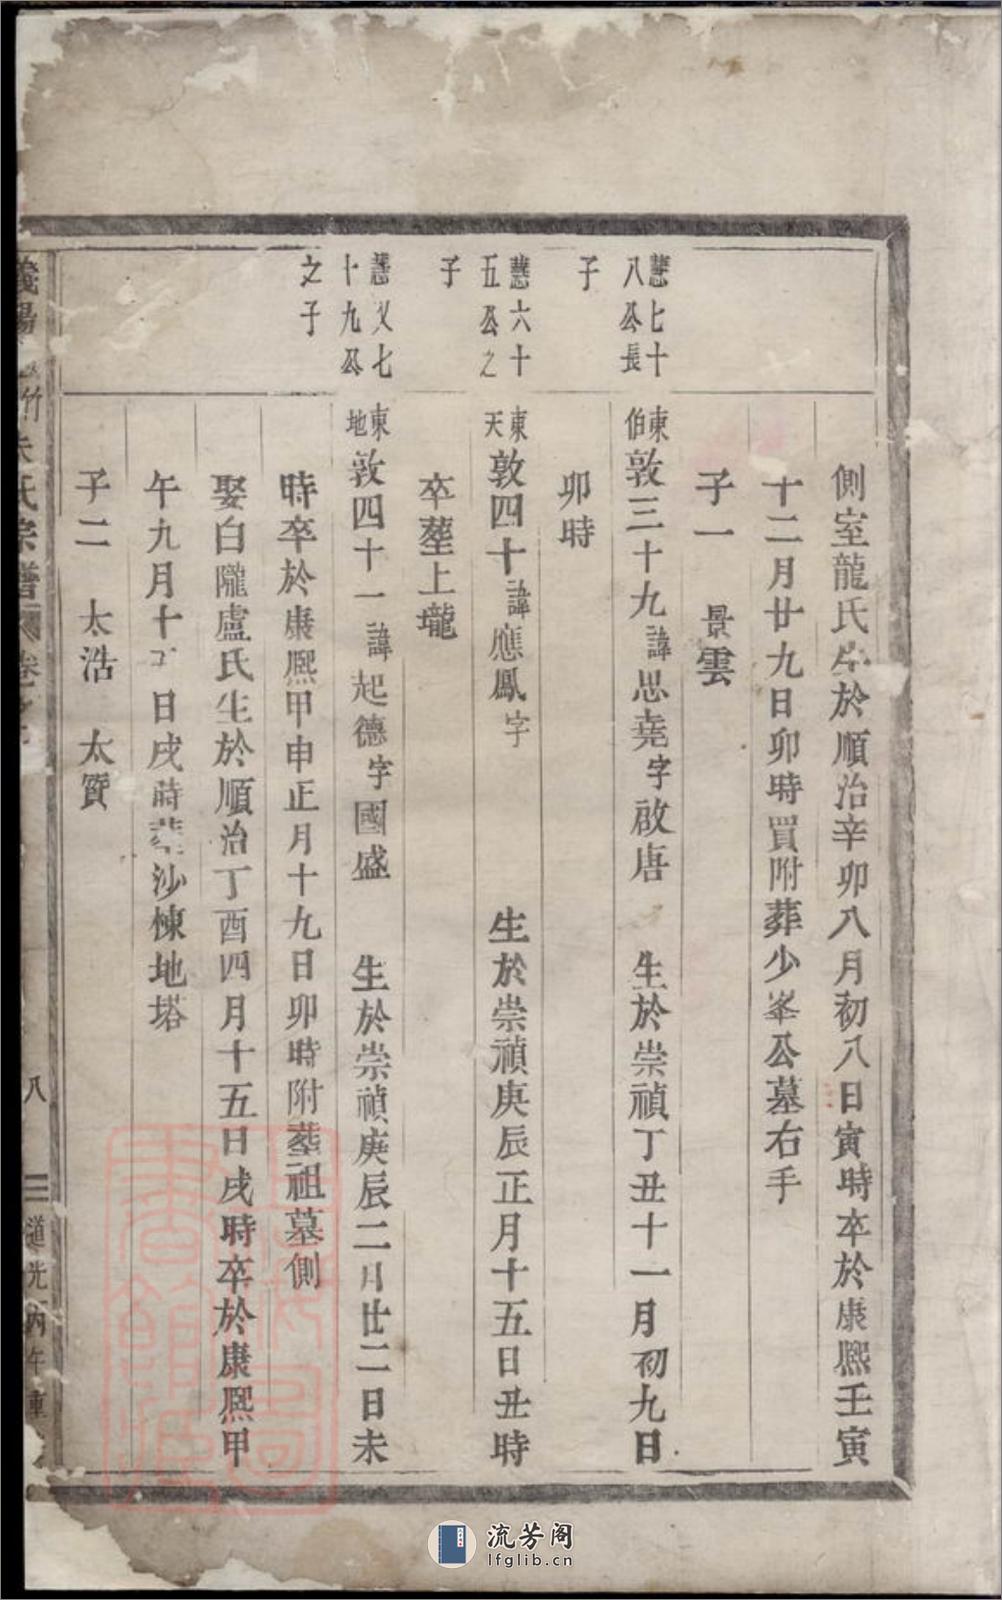 側室龍氏生於順治辛卯八月初八日寅時卒於康熙壬寅
十二月廿九日卯時買附葬少峯公墓右手
子一 景雲
慧七十八公長子
東伯敦三十九諱思堯字啟唐 生於崇禎丁丑十一月初九日
卯時
慧六十五公之子
東天敦四十諱應鳳字 生於崇禎庚辰正月十五日丑時
卒塟上壠
慧又七十九公之子
東地敦四十一諱起德字國盛 生於崇禎庚辰二月廿二日未
時卒於康熙甲申正月十九日卯時附塟祖墓側
娶白隴盧氏生於順治丁酉四月十五日戌時卒於康熙甲
午九月十日戌時塟沙棟地塔
子二 太浩 太寶
義陽 竹朱氏宗譜 卷之 八 道光丙午重
流芳阁
lfglib.cn